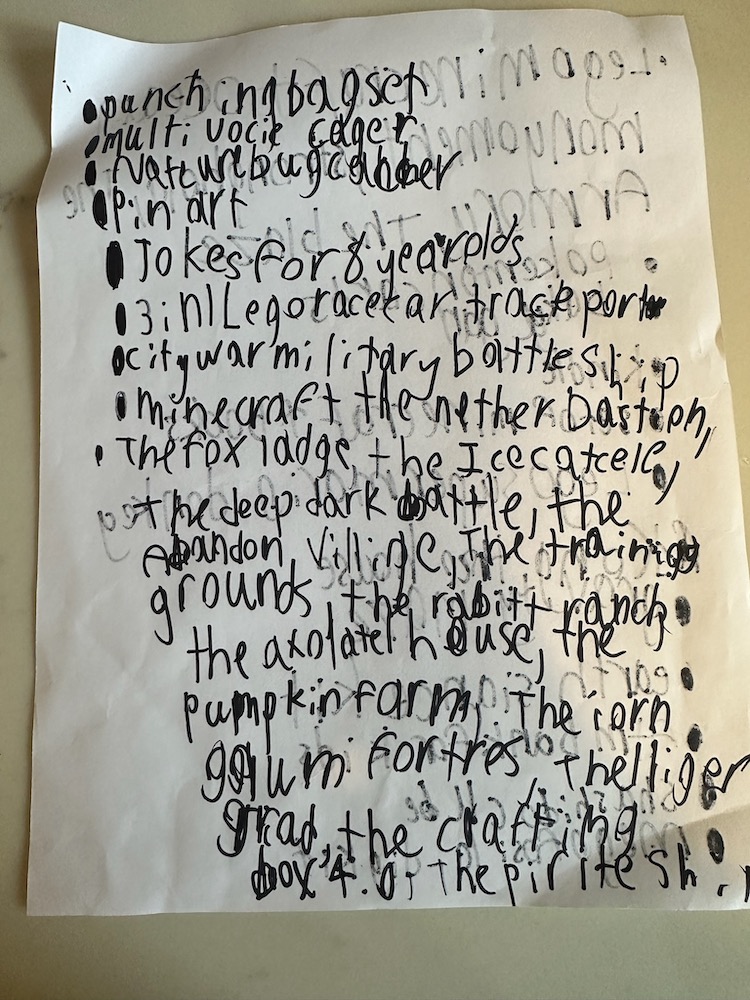 punching bag set
multi vocie cager
Naturl bug
Pin art
Jokes for 8 year olds
3in1 Lego racecar track
city war military battleship
minecraft the nether bastion,
The fox ladge, the Icecatcele,
the deep dark battle, the
Abandon Villige, The training
grounds, the rabitt ranch
the axolatel house, the
pumpkin farm, The iorn
golum fortres Thelliger
grad, the crafting
box 4.0, the pirite sh